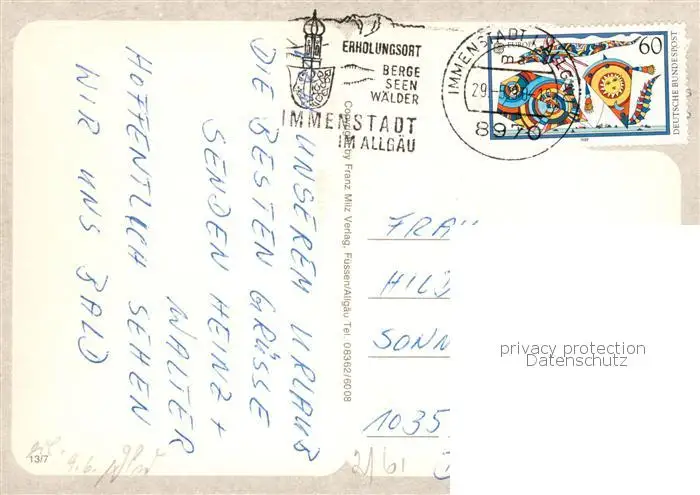 UNSEREM URLAUB
DIE BESTEN GRÜSSE
SENDEN HEINZ +
WALTER
HOFFENTLICH SEHEN
WIR UNS BALD
13/7
Copyright by Franz Milz Verlag, Füssen/Allgäu Tel. 08362/6008
ERHOLUNGSORT
BERGE
SEEN
WÄLDER
IMMENSTADT
IM ALLGÄU
IMMENSTADT
8970
EUROPA
60
DEUTSCHE BUNDESPOST
FRA
HILD
SONN
1035
privacy protection
Datenschutz